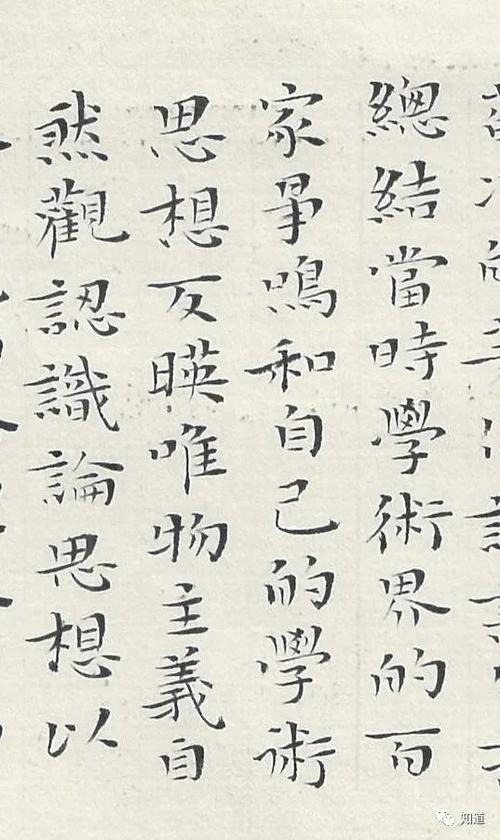 總結當時學術界的百
家爭鳴和自己的學術
思想反暎唯物主義自
然觀認識論思想以
知道